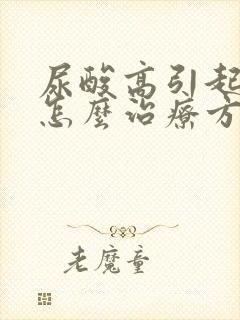 尿酸高引起
怎麼治療方
老魔童